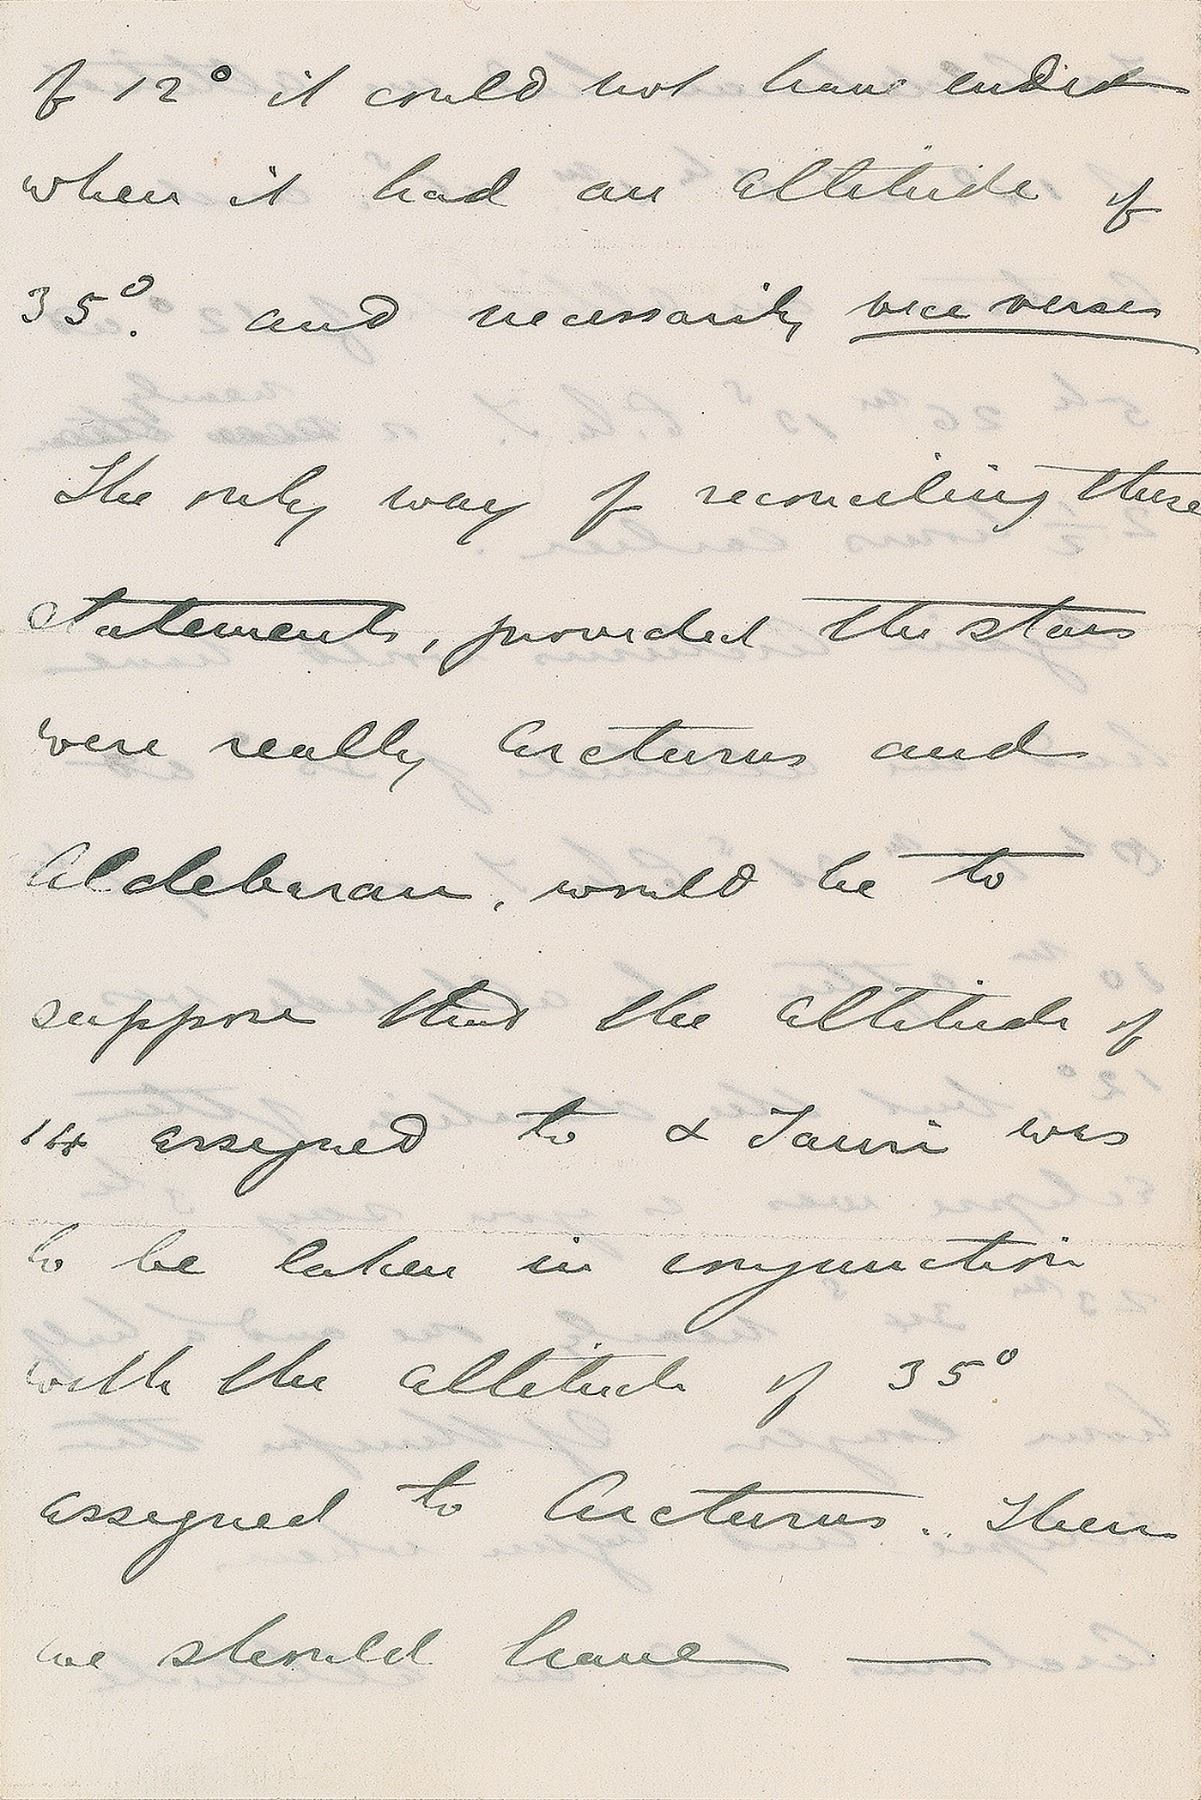 of 12° it could not have ended
when it had an altitude of
35°. and necessarily vice versa
The only way of reconciling these
statements, provided the stars
were really Arcturus and
Aldebaran, would be to
suppose that the altitude of
14 assigned to α Tauri was
to be taken in conjunction
with the altitude of 35°
assigned to Arcturus. Then
we should have —